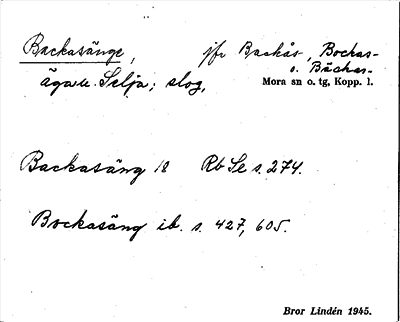 Backasänge, jfr Backås, Bockas-
o. Bäckas-
äga u. Selja; slog,
Mora sn o. tg, Kopp. l.
Backasäng 18 Rb Se s. 274.
Bockasäng ib. s. 427, 605.
Bror Lindén 1945.